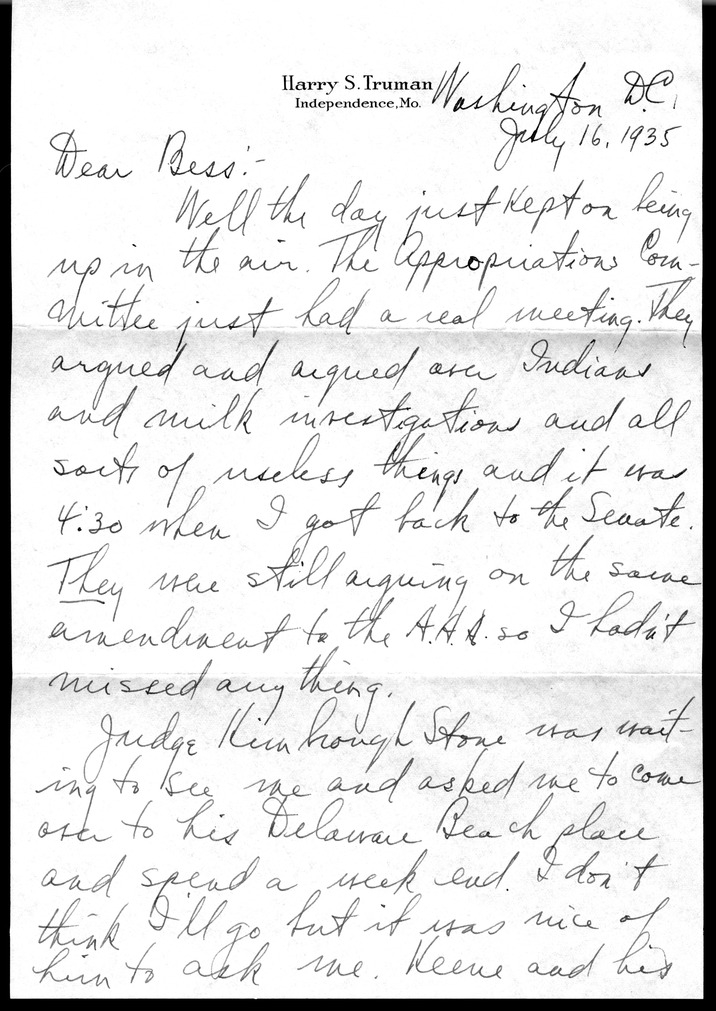 Harry S. Truman
Independence, Mo.
Washington D.C.
July 16, 1935
Dear Bess:-
Well the day just kept on being
up in the air. The Appropriations Com-
mittee just had a real meeting. They
argued and argued over Indians
and milk investigations and all
sorts of useless things and it was
4:30 when I got back to the Senate.
They were still arguing on the same
amendment to the A.A.A. so I hadn't
missed anything.
Judge Kimbrough Stone was wait-
ing to see me and asked me to come
over to his Delaware Beach place
and spend a week end. I don't
think I'll go but it was nice of
him to ask me. Keene and his